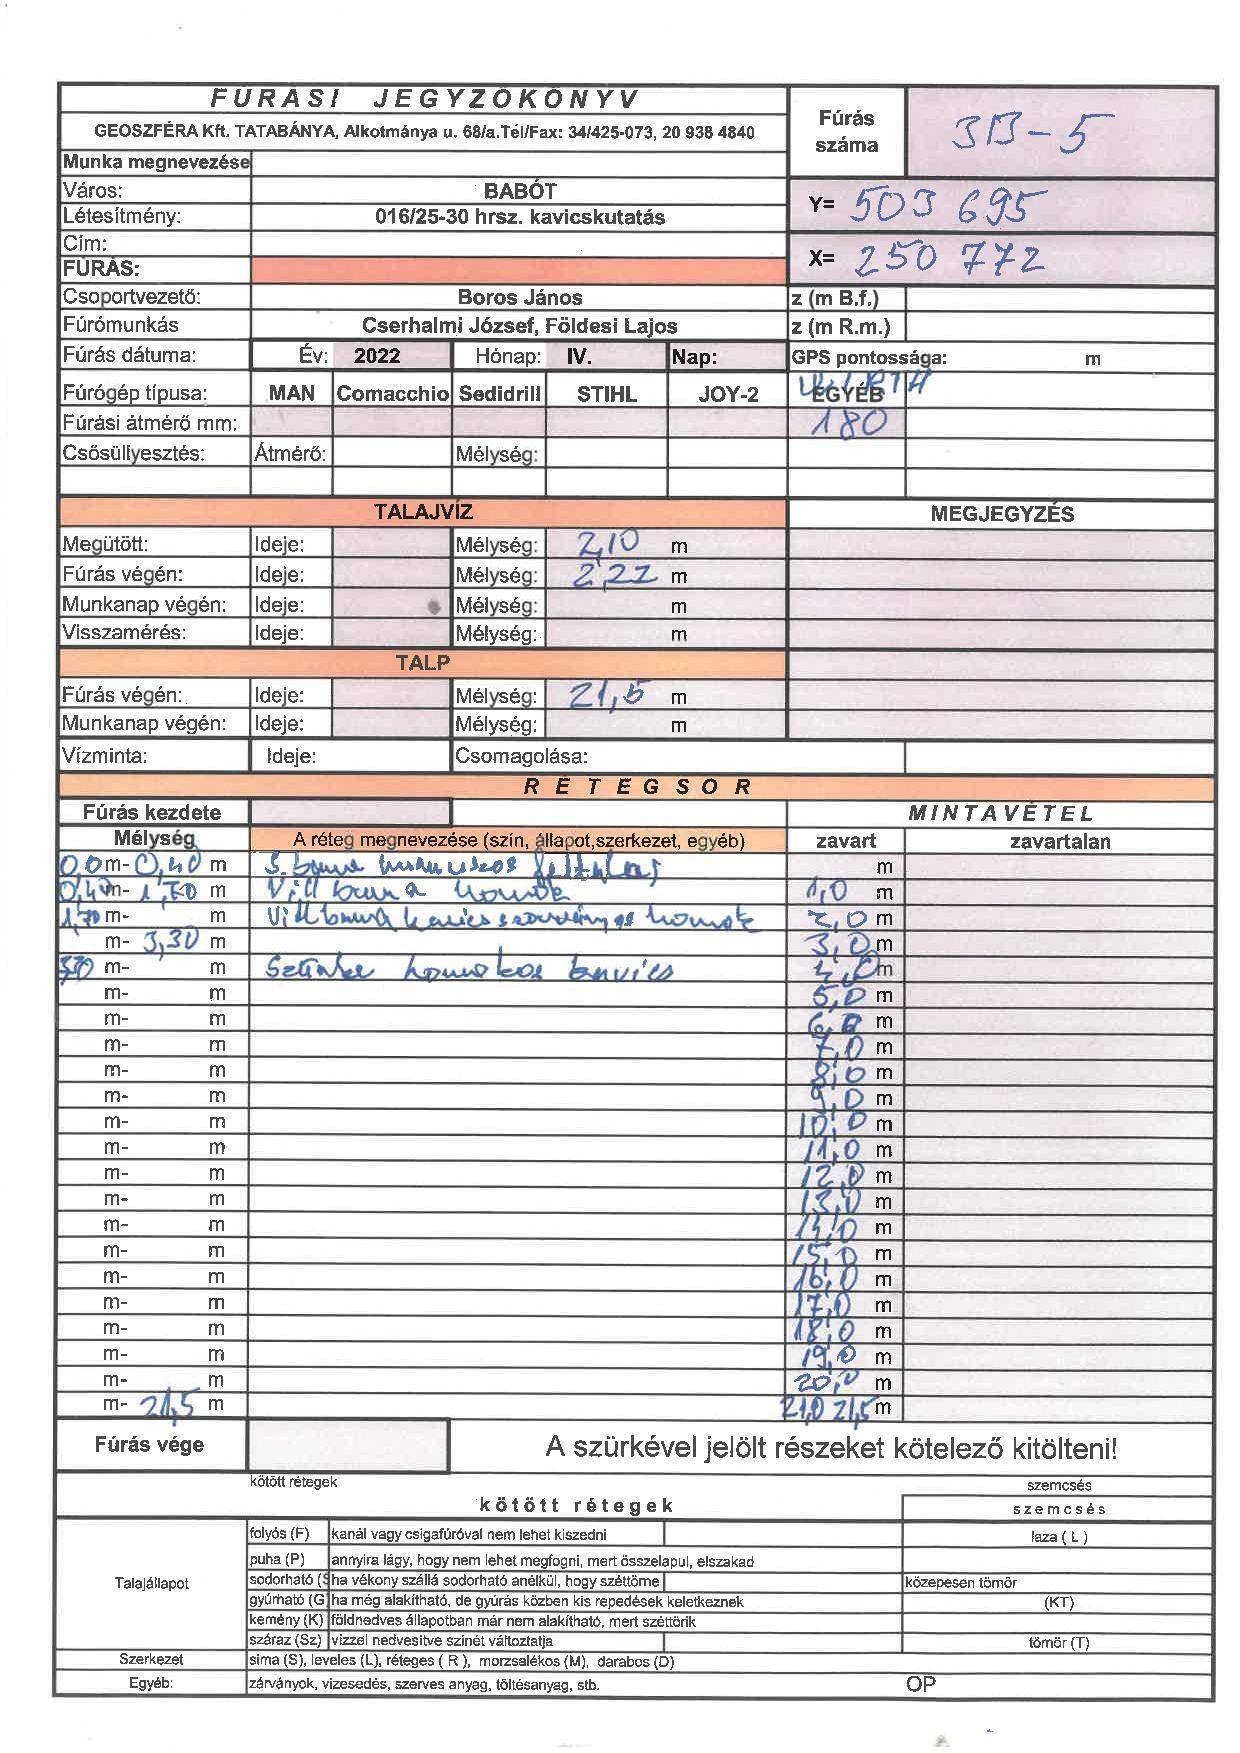 FÚRÁSI JEGYZŐKÖNYV
GEOSZFÉRA Kft. TATABÁNYA, Alkotmánya u. 68/a.Tél/Fax: 34/425-073, 20 938 4840
Fúrás száma
3B-5
Munka megnevezése
Város: BABÓT
Y= 503 695
Létesítmény: 016/25-30 hrsz. kavicskutatás
Cím:
X= 250 772
FÚRÁS:
Csoportvezető: Boros János z (m B.f.)
Fúrómunkás Cserhalmi József, Földesi Lajos z (m R.m.)
Fúrás dátuma: Év: 2022 Hónap: IV. Nap: GPS pontossága: m
Fúrógép típusa: MAN Comacchio Sedidrill STIHL JOY-2 EGYÉB
Fúrási átmérő mm: 180
Csősüllyesztés: Átmérő: Mélység:
TALAJVÍZ MEGJEGYZÉS
Megütött: Ideje: Mélység: 2,10 m
Fúrás végén: Ideje: Mélység: 2,22 m
Munkanap végén: Ideje: Mélység: m
Visszamérés: Ideje: Mélység: m
TALP
Fúrás végén: Ideje: Mélység: 21,5 m
Munkanap végén: Ideje: Mélység: m
Vízminta: Ideje: Csomagolása:
RÉTEGSOR
Fúrás kezdete MINTAVÉTEL
Mélység A réteg megnevezése (szín, állapot,szerkezet, egyéb) zavart zavartalan
0,0 m- 0,40 m S. barna humuszos feltalaj m
0,40 m- 1,70 m Vill barna homok 1,0 m
1,70 m- m Vill barna kavics szórványos homok 2,0 m
m- 3,30 m 3,0 m
3,30 m- m Szürke homokos kavics 4,0 m
m- m 5,0 m
m- m 6,0 m
m- m 7,0 m
m- m 8,0 m
m- m 9,0 m
m- m 10,0 m
m- m 11,0 m
m- m 12,0 m
m- m 13,0 m
m- m 14,0 m
m- m 15,0 m
m- m 16,0 m
m- m 17,0 m
m- m 18,0 m
m- m 19,0 m
m- m 20,0 m
m- 21,5 m 21,0 21,5 m
Fúrás vége A szürkével jelölt részeket kötelező kitölteni!
kötött rétegek szemcsés
kötött rétegek szemcsés
folyós (F) kanál vagy csigafúróval nem lehet kiszedni laza ( L )
puha (P) annyira lágy, hogy nem lehet megfogni, mert összelapul, elszakad
Talajállapot sodorható (S ha vékony szállá sodorható anélkül, hogy széttöme közepesen tömör
gyúrható (G ha még alakítható, de gyúrás közben kis repedések keletkeznek (KT)
kemény (K) földnedves állapotban már nem alakítható, mert széttörik
száraz (Sz) vízzel nedvesítve színét változtatja tömör (T)
Szerkezet sima (S), leveles (L), réteges ( R ), morzsalékos (M), darabos (D)
Egyéb: zárványok, vizesedés, szerves anyag, töltésanyag, stb. OP